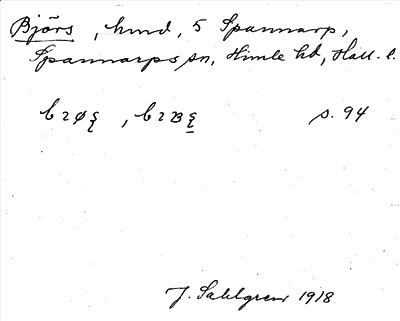 Björs, hmd, 5 Spannarp,
Spannarps sn, Himle hd, Hall. l.
s. 94
J. Sahlgren 1918